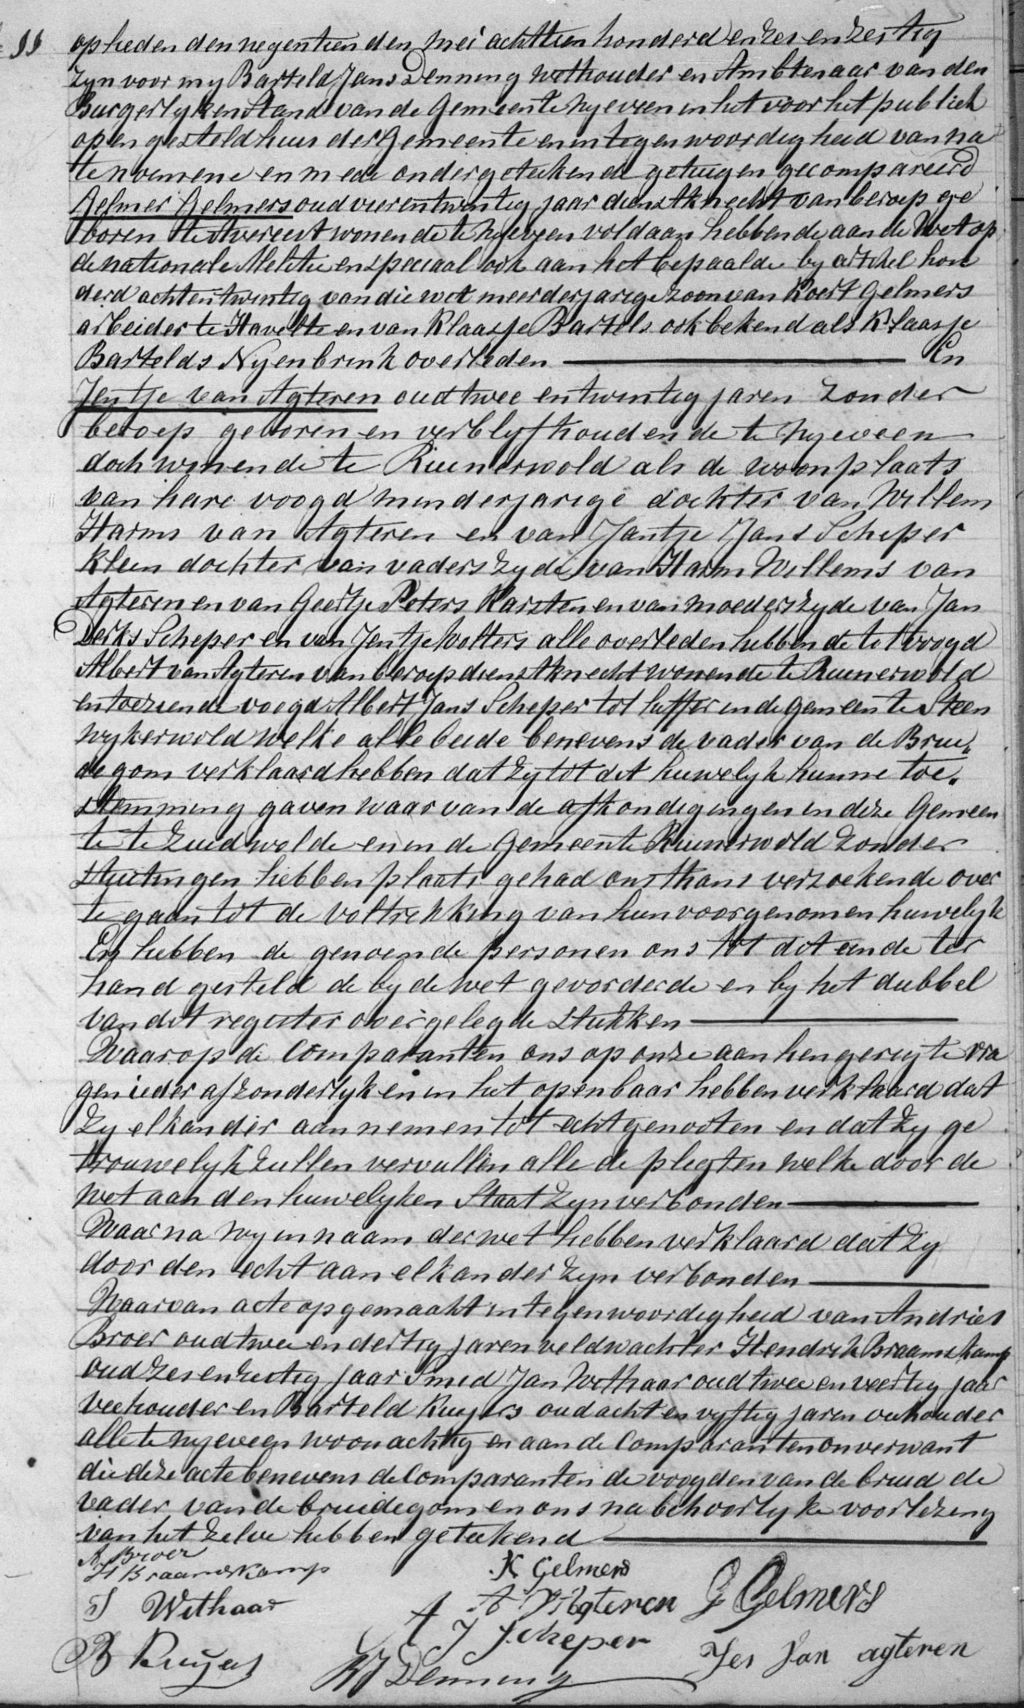 11
op heden den negentienden mei achttien honderd en zes en zestig
zyn voor my Barteld Jans Denning wethouder en Ambtenaar van den
Burgerlyken Stand van de Gemeente Nyeveen in het voor het publiek
open gesteld huis der Gemeente en in tegenwoordigheid van na
te noemene en mede ondergeteekende getuigen gecompareerd
Gelmer Gelmers oud vierentwintig jaar dienstknecht van beroep ge
boren te wonende te Nyeveen voldaan hebbende aan de Wet op
de nationale Melitie en speciaal ook aan het bepaalde by artikel hon
derd achtentwintig van die wet meerderjarige zoon van Koert Gelmers
arbeider te Havelte en van Klaasje Bartels ook bekend als Klaasje
Bartelds Nyenbrink overleden En
Jentje van Agteren oud twee en twintig jaren zonder
beroep geboren en verblyfhoudende te Nyeveen
doch wonende te Ruinerwold als de woonplaats
van hare voogd minderjarige dochter van Willem
Harms van Agteren en van Jantje Jans Scheper
klein dochter van vaders zyde van Harm Willems van
Agteren en van Geertje Peters Karsten en van moeders zyde van Jan
Derks Scheper en van Jentje Wolters alle overleden hebbende tot voogd
Albert van Agteren van beroep dienstknecht wonende te Ruinerwold
en toeziende voogd Albert Jans Scheper tot in de gemeente Steen
wykerwold welke alle beide benevens de vader van de Brui
degom verklaard hebben dat zy tot dit huwelyk hunne toe
stemming gaven waarvan de afkondigingen in deze Gemeen
te te Zuidwolde en in de Gemeente Ruinerwold zonder
stuitingen hebben plaats gehad ons thans verzoekende over
te gaan tot de voltrekking van hun voorgenomen huwelyk
En hebben de genoemde personen ons tot dat einde ter
hand gesteld de by de wet gevorderde en by het dubbel
van dit register overgelegde stukken
Waarop de Comparanten ons op onze aan hen gerigte vra
gen ieder afzonderlyk en in het openbaar hebben verklaard dat
zy elkander aannemen tot echtgenooten en dat zy ge
trouwelyk zullen vervullen alle de plegten welke door de
wet aan den huwelyken Staat zyn verbonden
Waarna wy in naam der wet hebben verklaard dat zy
door den echt aan elkander zyn verbonden
Waarvan acte opgemaakt in tegenwoordigheid van Andries
Broer oud twee en dertig jaren veldwachter Hendrik Braamskamp
oud zes en zestig jaar Smid Jan Withaar oud twee en veertig jaar
veehouder en Barteld Kuyers oud acht en vyftig jaren veehouder
alle te Nyeveen woonachtig en aan de Comparanten onverwant
die deze acte benevens de Comparanten de voogden van de bruid de
vader van de bruidegom en ons na behoorlyke voorlezing
van het zelve hebben geteekend
A Broer
H Braamskamp
K Gelmers
J Withaar
A V Agteren
G Gelmers
A J Scheper
B Kuyers
BJ Denning
Jes van agteren